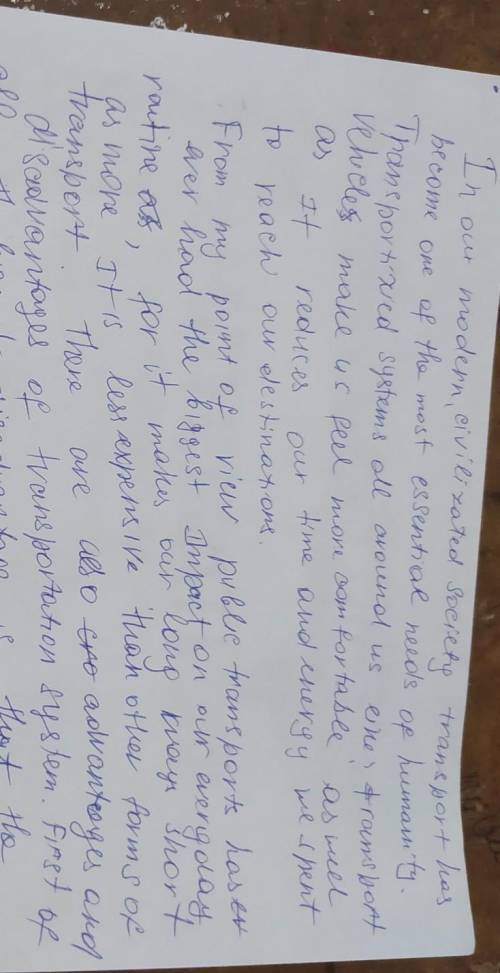 In our modern, civilizated society transport has
become one of the most essential needs of humanity.
Transportaxed systems all around us like; transport
vehicles make us feel more comfortable as well
as It reduces our time and energy we spent
to reach our destinations.
From my point of view public transports has
ever had the biggest Impact on our everyday
routine, for it makes our long ways short
as more It is less expensive than other forms of
transport. There are also advantages and
disadvantages of transportation system. First of
all the disadvantage is that the